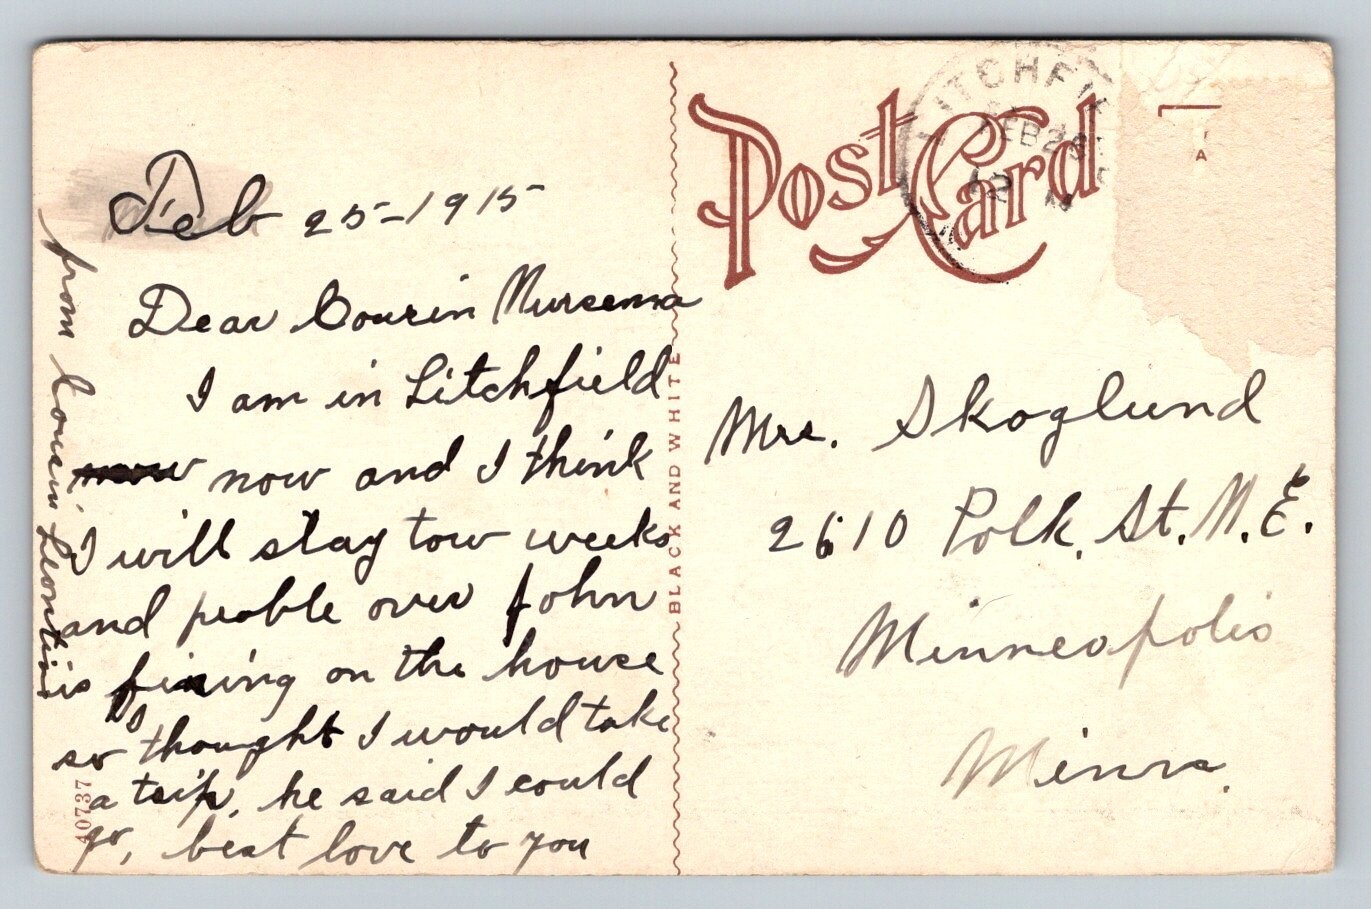 Feb 25-1915
Dear Cousin Mursema
I am in Litchfield
now now and I think
I will stay tow weeks
and proble over John
is fixing on the house
so I thought I would take
a trip, he said I could
go, best love to you
from Cousin Leontin
40737
BLACK AND WHITE
Post Card
LITCHFI
FEB 25
12 M
A
Mrs. Skoglund
2610 Polk. St. N. E.
Minneapolis
Minn.